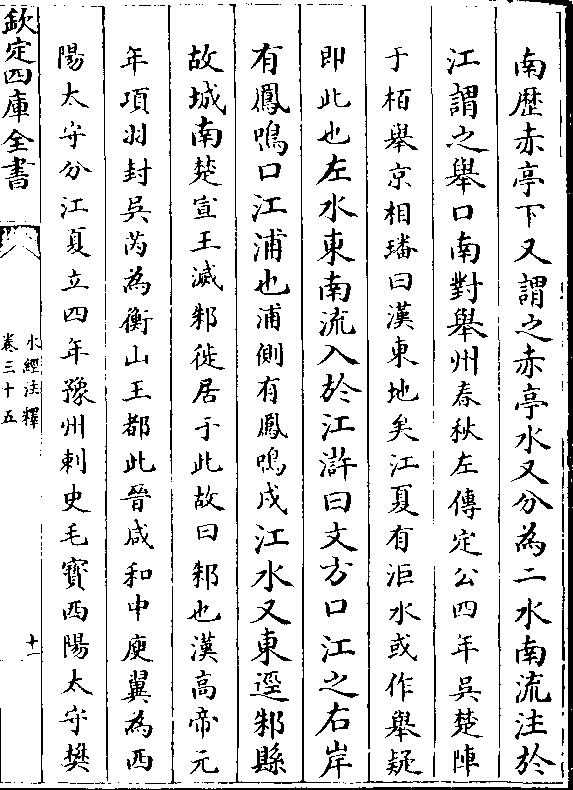 南歴赤亭下又謂之赤亭水又分為二水南流注於
江謂之舉口南對舉州春秋左傳定公四年吳楚陣
于柏舉京相璠曰漢東地矣江夏有洰水或作舉疑
即此也左水東南流入於江滸曰文方口江之右岸
有鳳鳴口江浦也浦側有鳳鳴戍江水又東逕邾縣
故城南楚宣王滅邾徙居于此故曰邾也漢高帝元
年項羽封吳芮為衡山王都此晉咸和中庾翼為西
陽太守分江夏立四年豫州刺史毛寶西陽太守樊
欽定四庫全書
水經注釋
卷三十五
十一